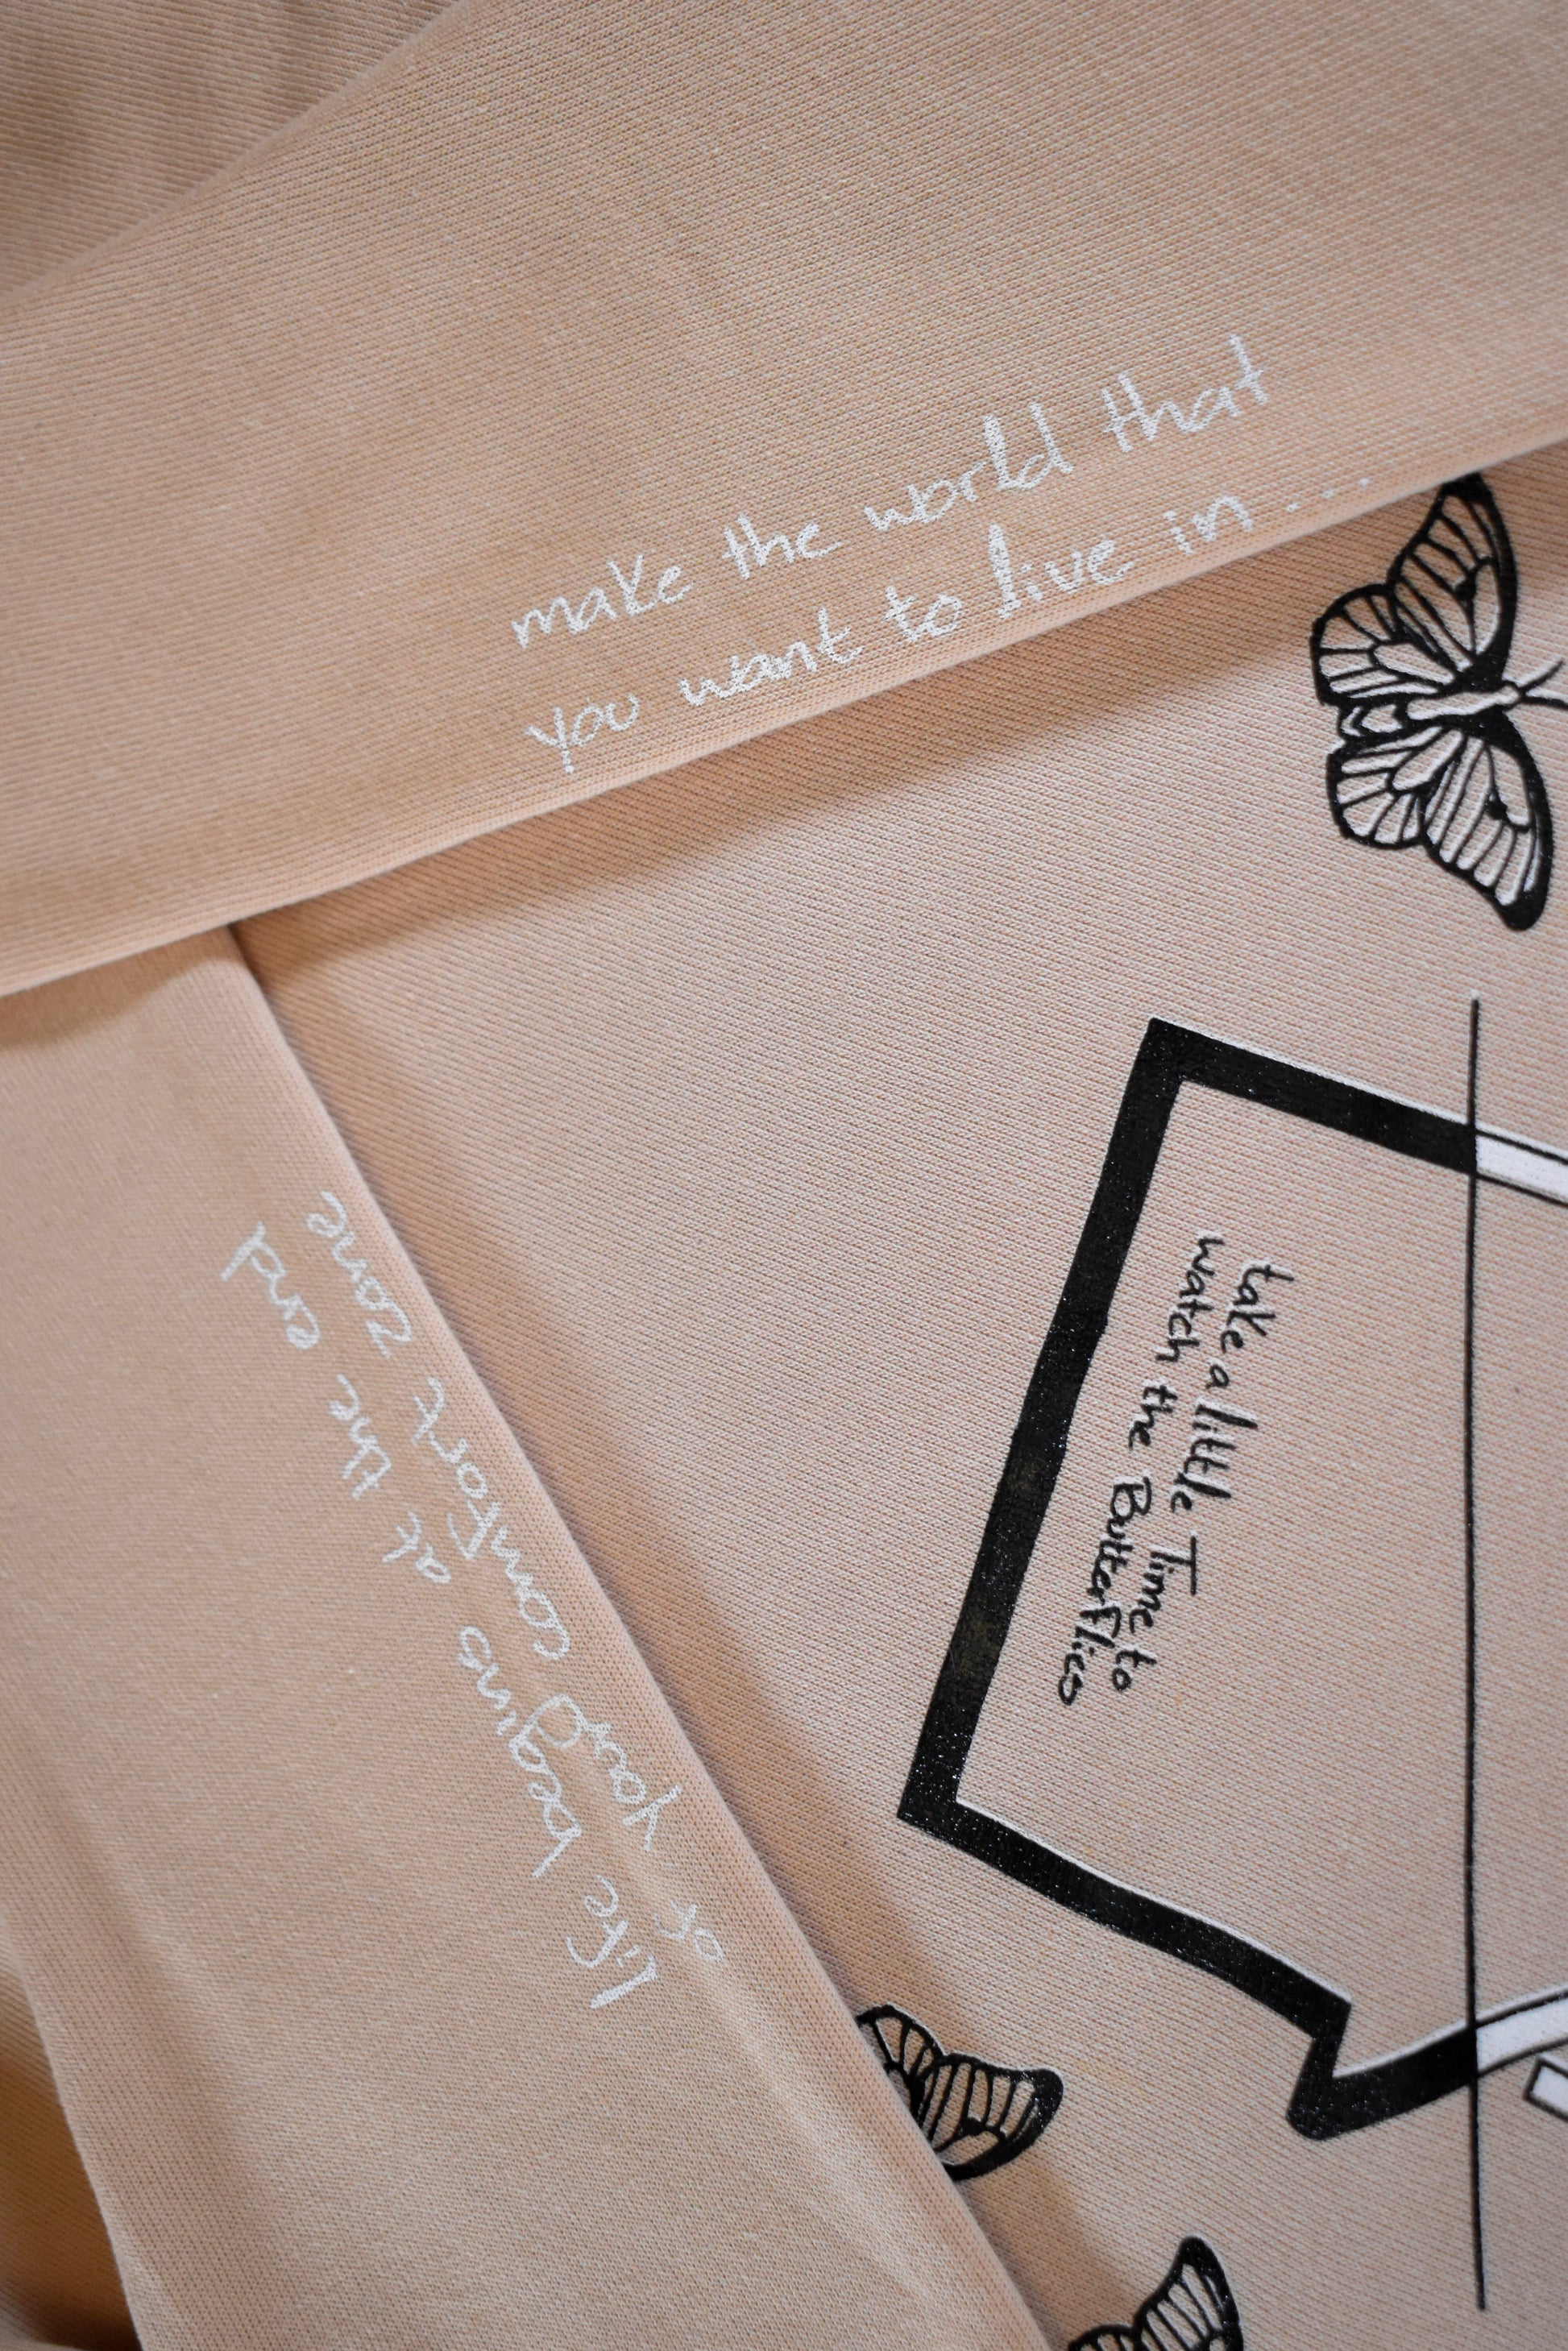 make the world that
you want to live in....
take a little Time to
watch the Butterflies
life begins at the end
of your comfort zone